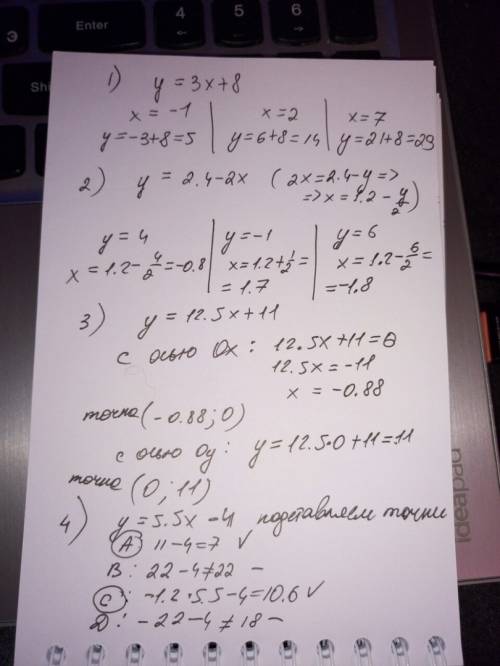 Э
Enter
4
←
5
↓
6
→
1) y = 3x+8
x = -1 | x = 2 | x = 7
y = -3+8 = 5 | y = 6+8 = 14 | y = 21+8 = 29
2) y = 2.4-2x ( 2x = 2.4-y =>
=> x = 1.2 - y/2 )
y = 4 | y = -1 | y = 6
x = 1.2 - 4/2 = -0.8 | x = 1.2 + 1/2 = | x = 1.2 - 6/2 =
= 1.7 | = -1.8
3) y = 12.5x+11
с осью Ox : 12.5x+11 = 0
12.5x = -11
x = -0.88
точка (-0.88; 0)
с осью Oy : y = 12.5·0+11 = 11
точка (0; 11)
4) y = 5.5x - 4 подставляем точки
A: 11-4 = 7 √
B: 22-4 ≠ 22 -
C: -1.2·5.5-4 = 10.6 √
D: -22-4 ≠ 18 -
ideapad